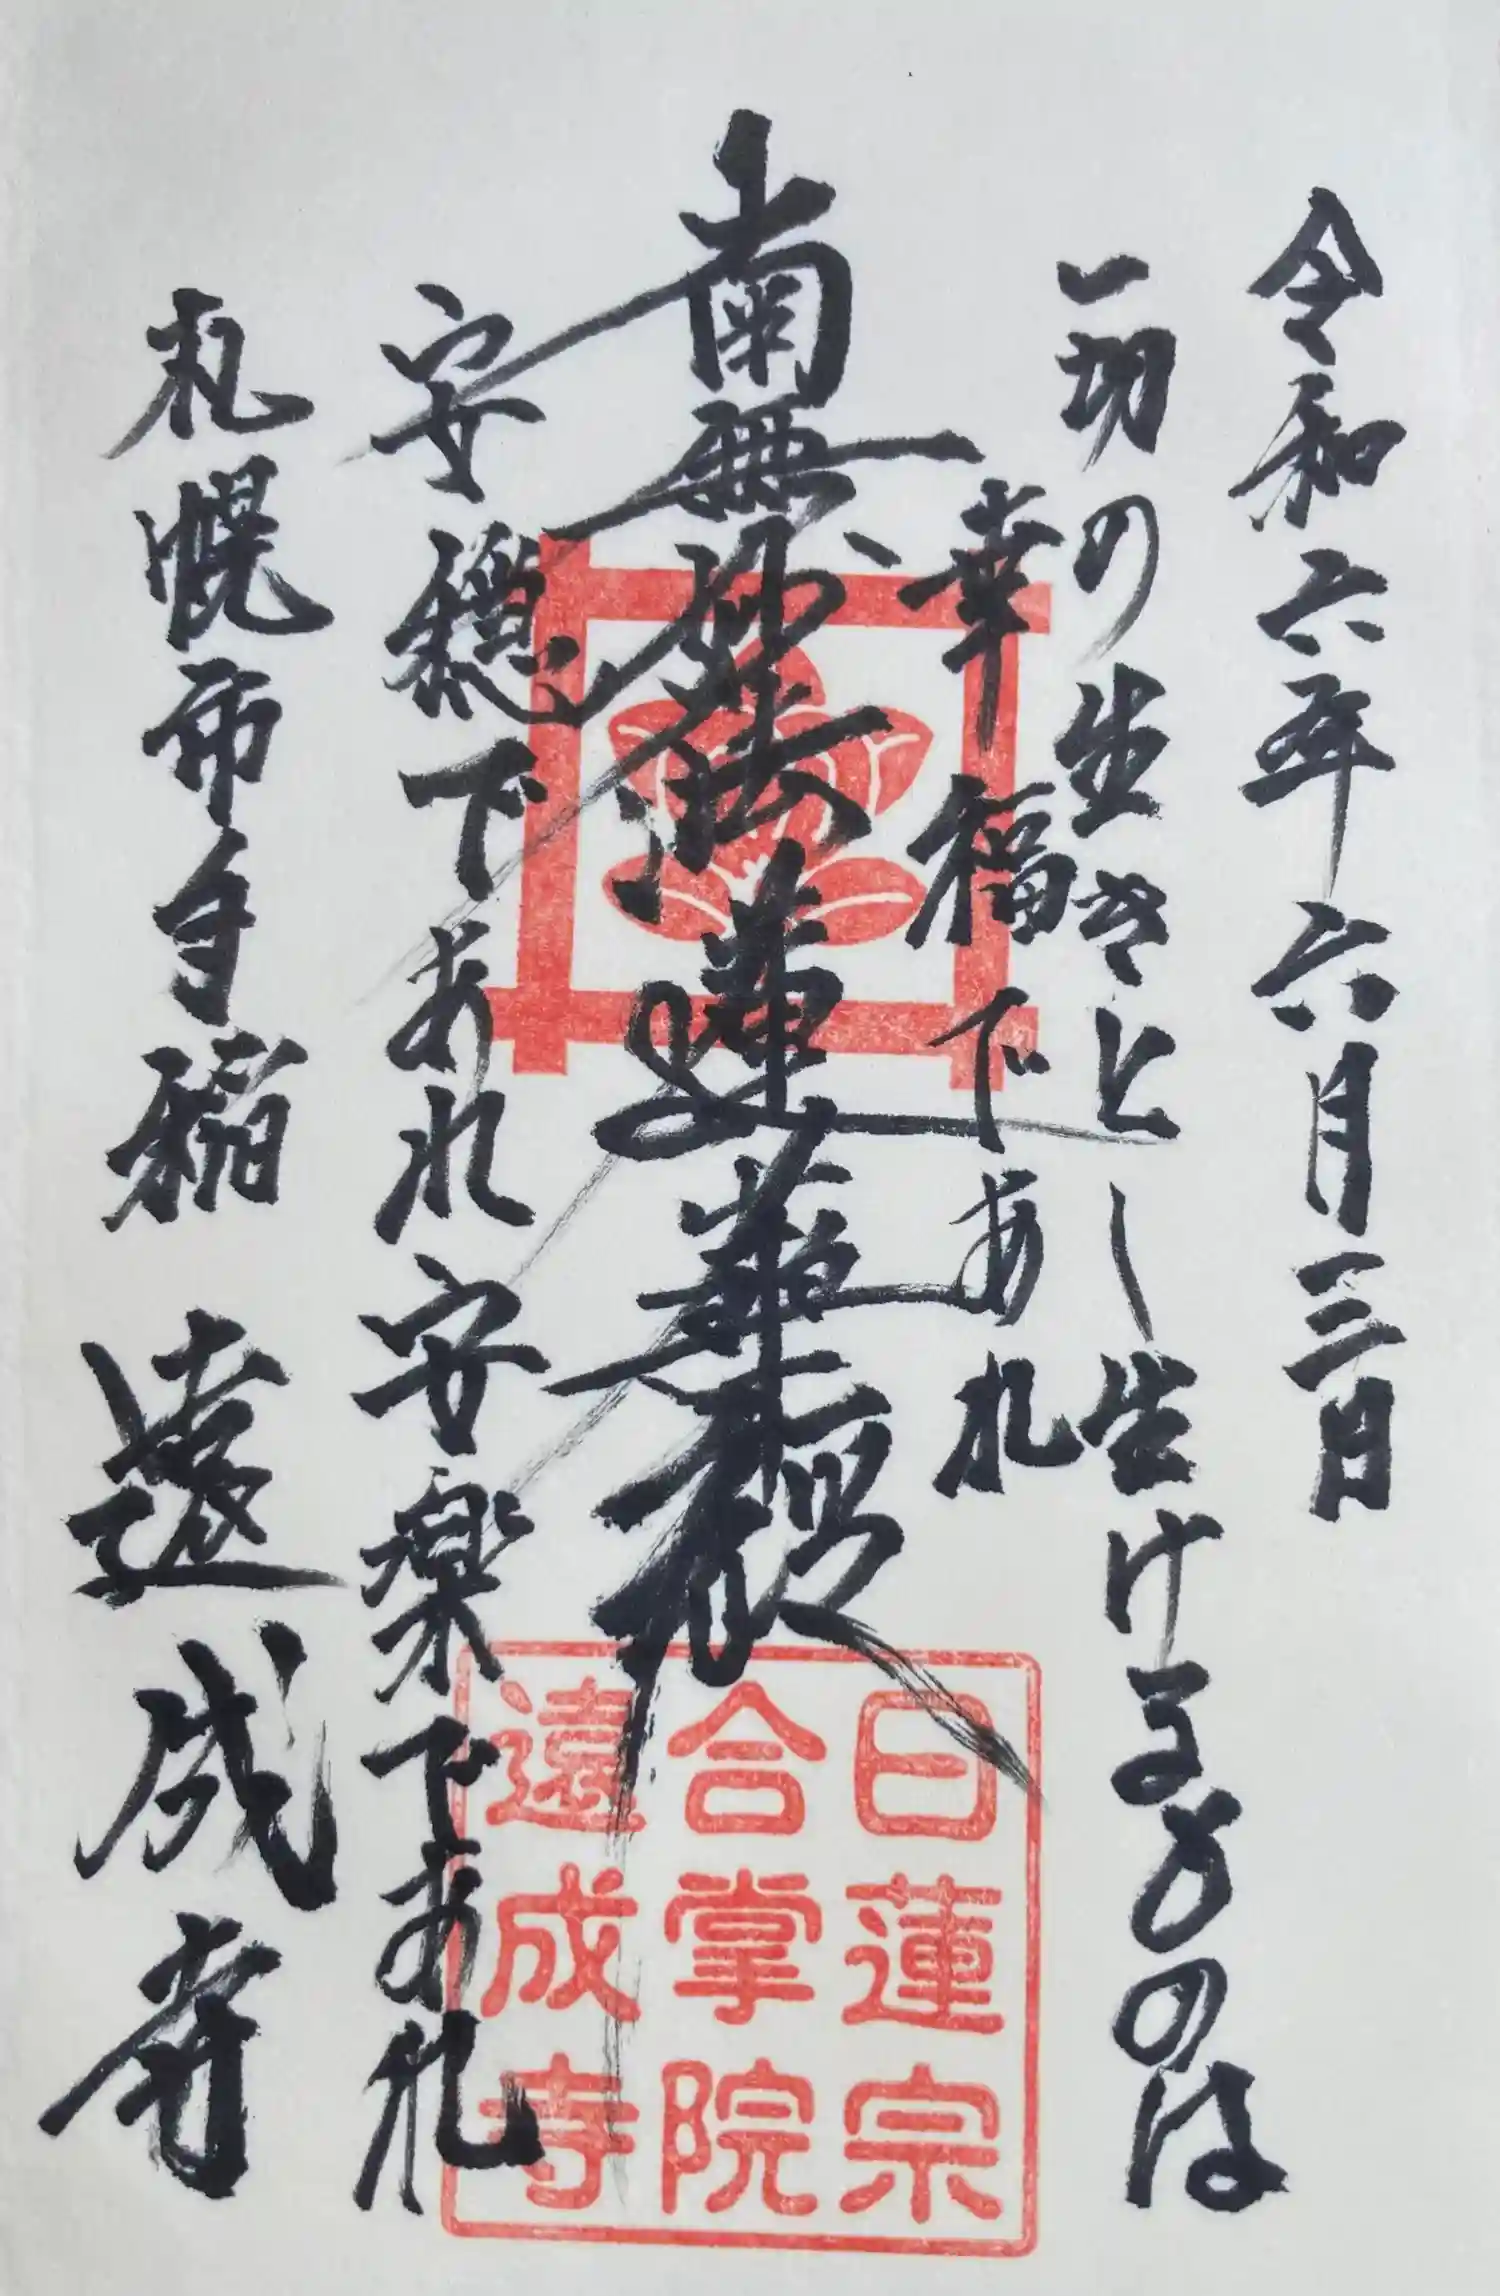 令和六年六月三日
一切の生きとし生けるものは
幸福であれ
南無妙法蓮華経
安穏であれ安楽であれ
札幌市手稲 遠成寺
日蓮宗
合掌院
遠成寺